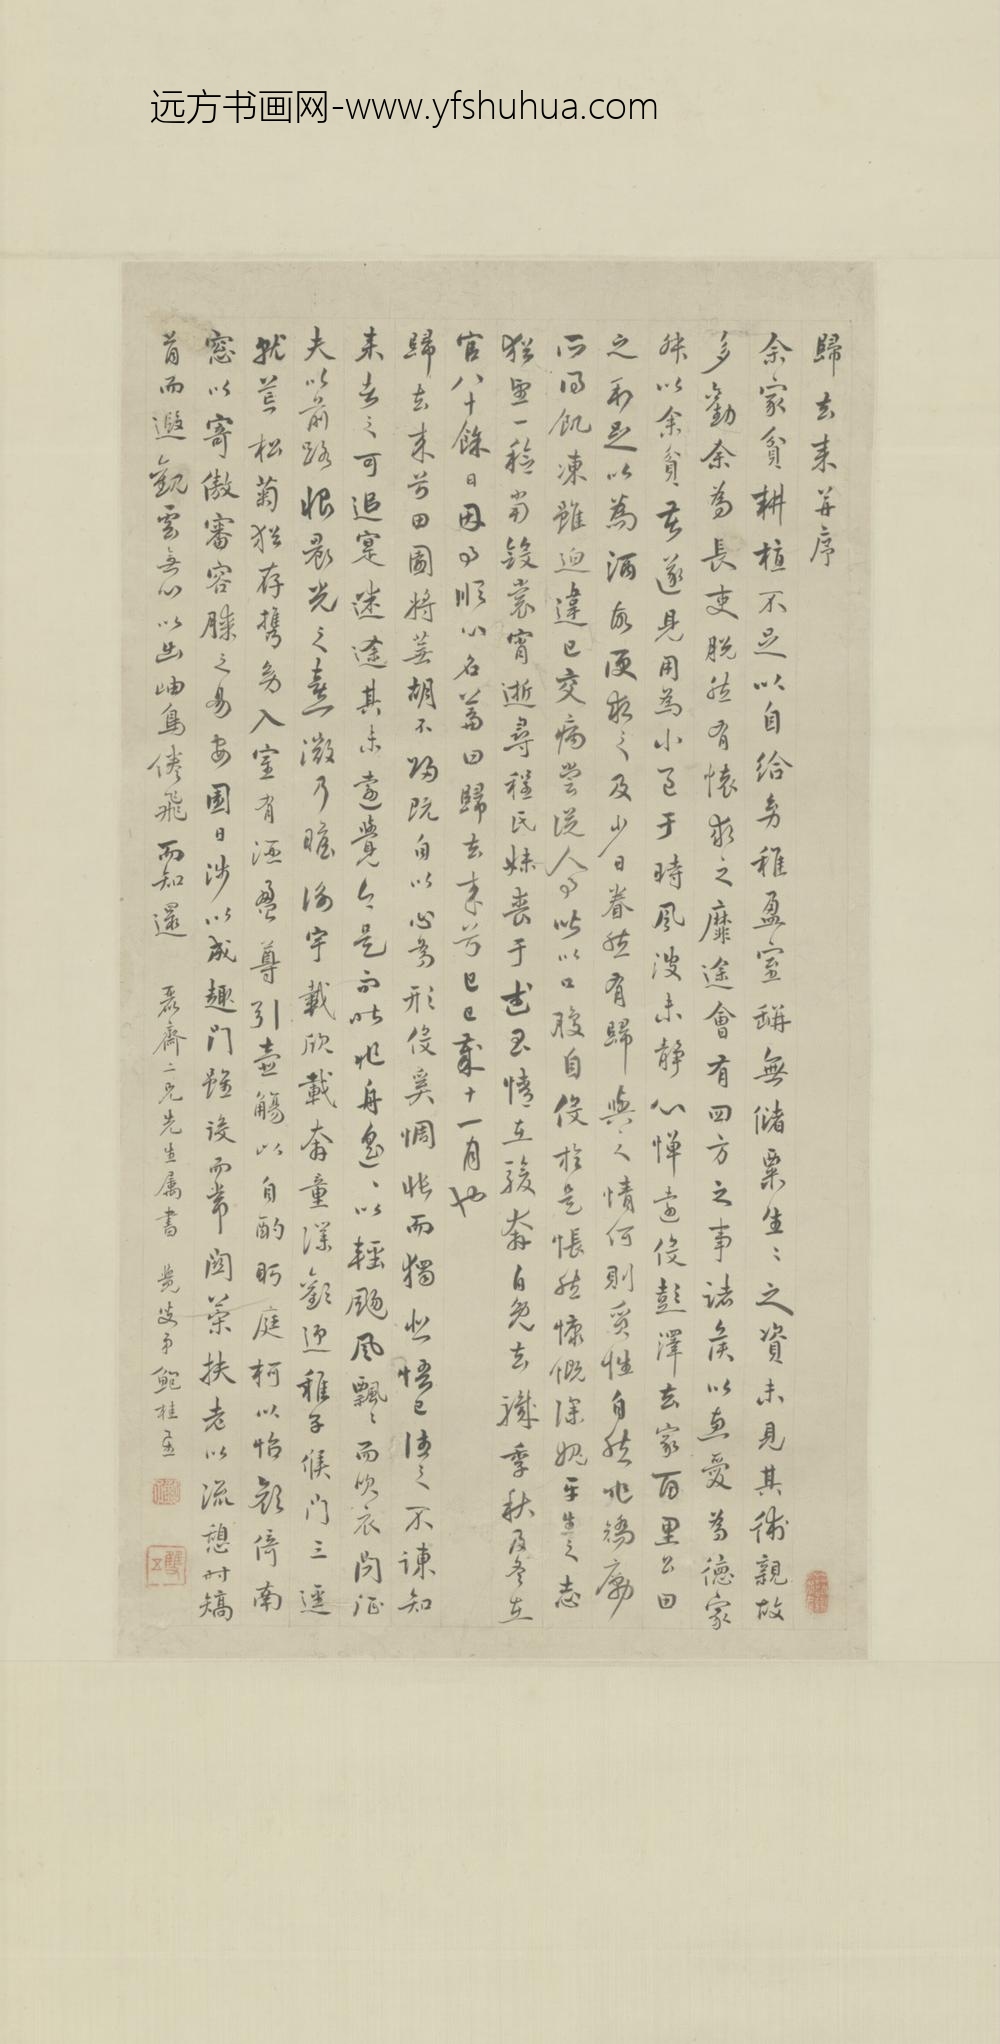 远方书画网-www.yfshuhua.com
歸去来并序
余家貧耕植不足以自給幼稚盈室缾無儲粟生〻之資未見其術親故
多勸余為長吏脱然有懷求之靡途會有四方之事諸侯以惠愛為德家
叔以余貧苦遂見用為小邑于時風波未静心憚遠役彭澤去家百里公田
之利足以為酒故便求之及少日眷然有歸與之情何則質性自然非矯勵
所得飢凍雖迫違己交病嘗從人事皆以口腹自役於是悵然慷慨深媿平生之志
猶望一稔當斂裳宵逝尋程氏妹喪于武昌情在駿奔自免去職季秋及冬在
官八十餘日因事順心名篇曰歸去来兮乙巳歲十一月也
歸去来兮田園將蕪胡不歸既自以心為形役奚惆悵而獨悲悟已往之不諫知
来者之可追寔迷途其未遠覺今是而昨非舟遥〻以輕颺風飄〻而吹衣問征
夫以前路恨晨光之熹微乃瞻衡宇載欣載奔童僕歡迎稚子候門三逕
就荒松菊猶存携幼入室有酒盈尊引壺觴以自酌眄庭柯以怡顔倚南
窓以寄傲審容膝之易安園日涉以成趣門雖設而常関策扶老以流憩时矯
首而遐觀雲無心以出岫鳥倦飛而知還 磊齋二兄先生属書 覺生弟鮑桂星
雙五